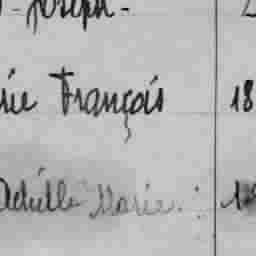 - Joseph -
rie François 18
Achille Marie. 18